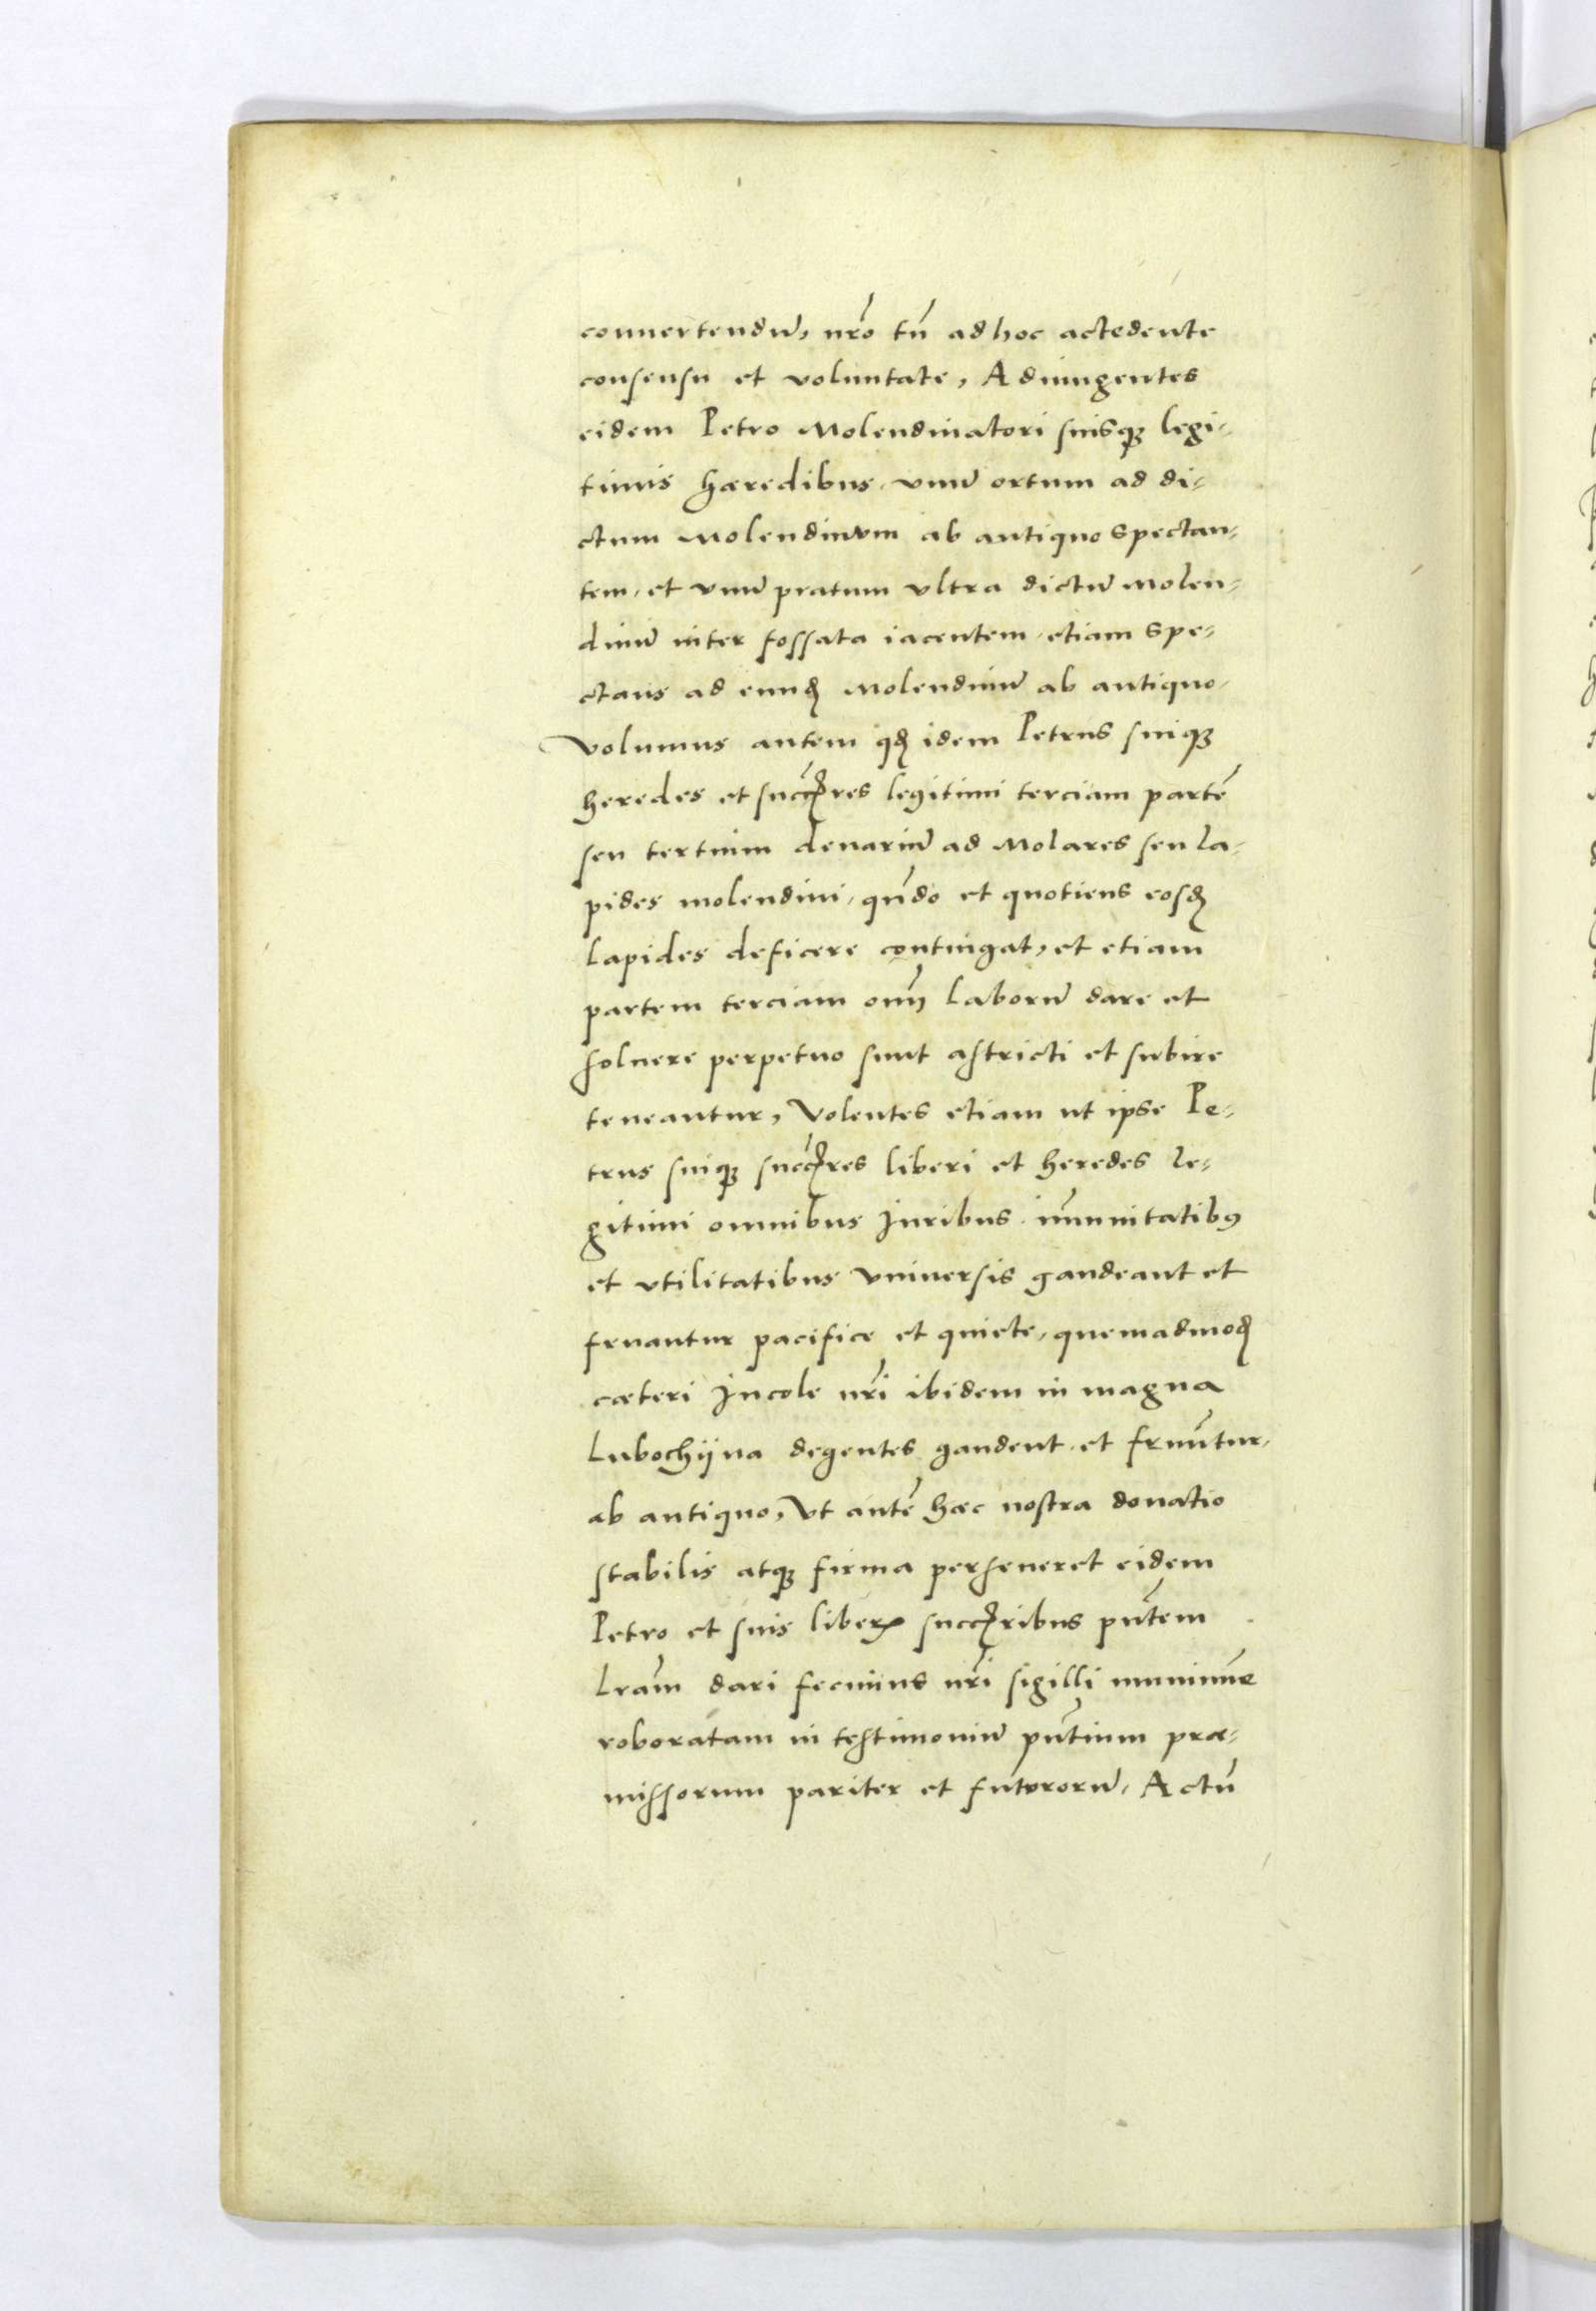 conuertendũ, nr̃o tñ ad hoc actedente
consensu et voluntate, Adiungentes
eidem Petro Molendinatori suisqʒ legi-
timis hæredibus, vnũ ortum ad di-
ctum Molendinvm ab antiquo spectan-
tem, et vnũ pratum vltra dictũ Molen-
dinũ inter fossata iacentem, etiam spe-
ctans ad eundꝫ Molendinũ ab antiquo,
Volumus autem qꝫ idem Petrus suiqʒ
heredes et succ̃res legitimi terciam partẽ
seu tertium denariũ ad Molares seu la-
pides molendini, qñdo et quotiens eosdꝫ
Lapides deficere contingat, et etiam
partem terciam om̃ laborũ dare et
soluere perpetuo sunt astricti et subire
teneantur, Volentes etiam ut ipse Pe-
trus suiqʒ succ̃res liberi et heredes le-
gitimi omnibus Juribus, im̃unitatibꝰ
et vtilitatibus vniuersis gaudeant et
fruantur pacifice et quiete, quemadmodꝫ
cæteri Jncole nr̃i ibidem in magna
Lubochÿna degentes gaudent et fruũtur,
ab antiquo, Vt autẽ hæc nostra donatio
stabilis atqʒ firma perseueret eidem
Petro et suis liberꝭ succ̃ribus pñtem
Lram̃ dari fecimus nr̃i sigilli munimine
roboratam in testimoniũ pñtium præ-
missorum pariter et futurorũ, Actũ